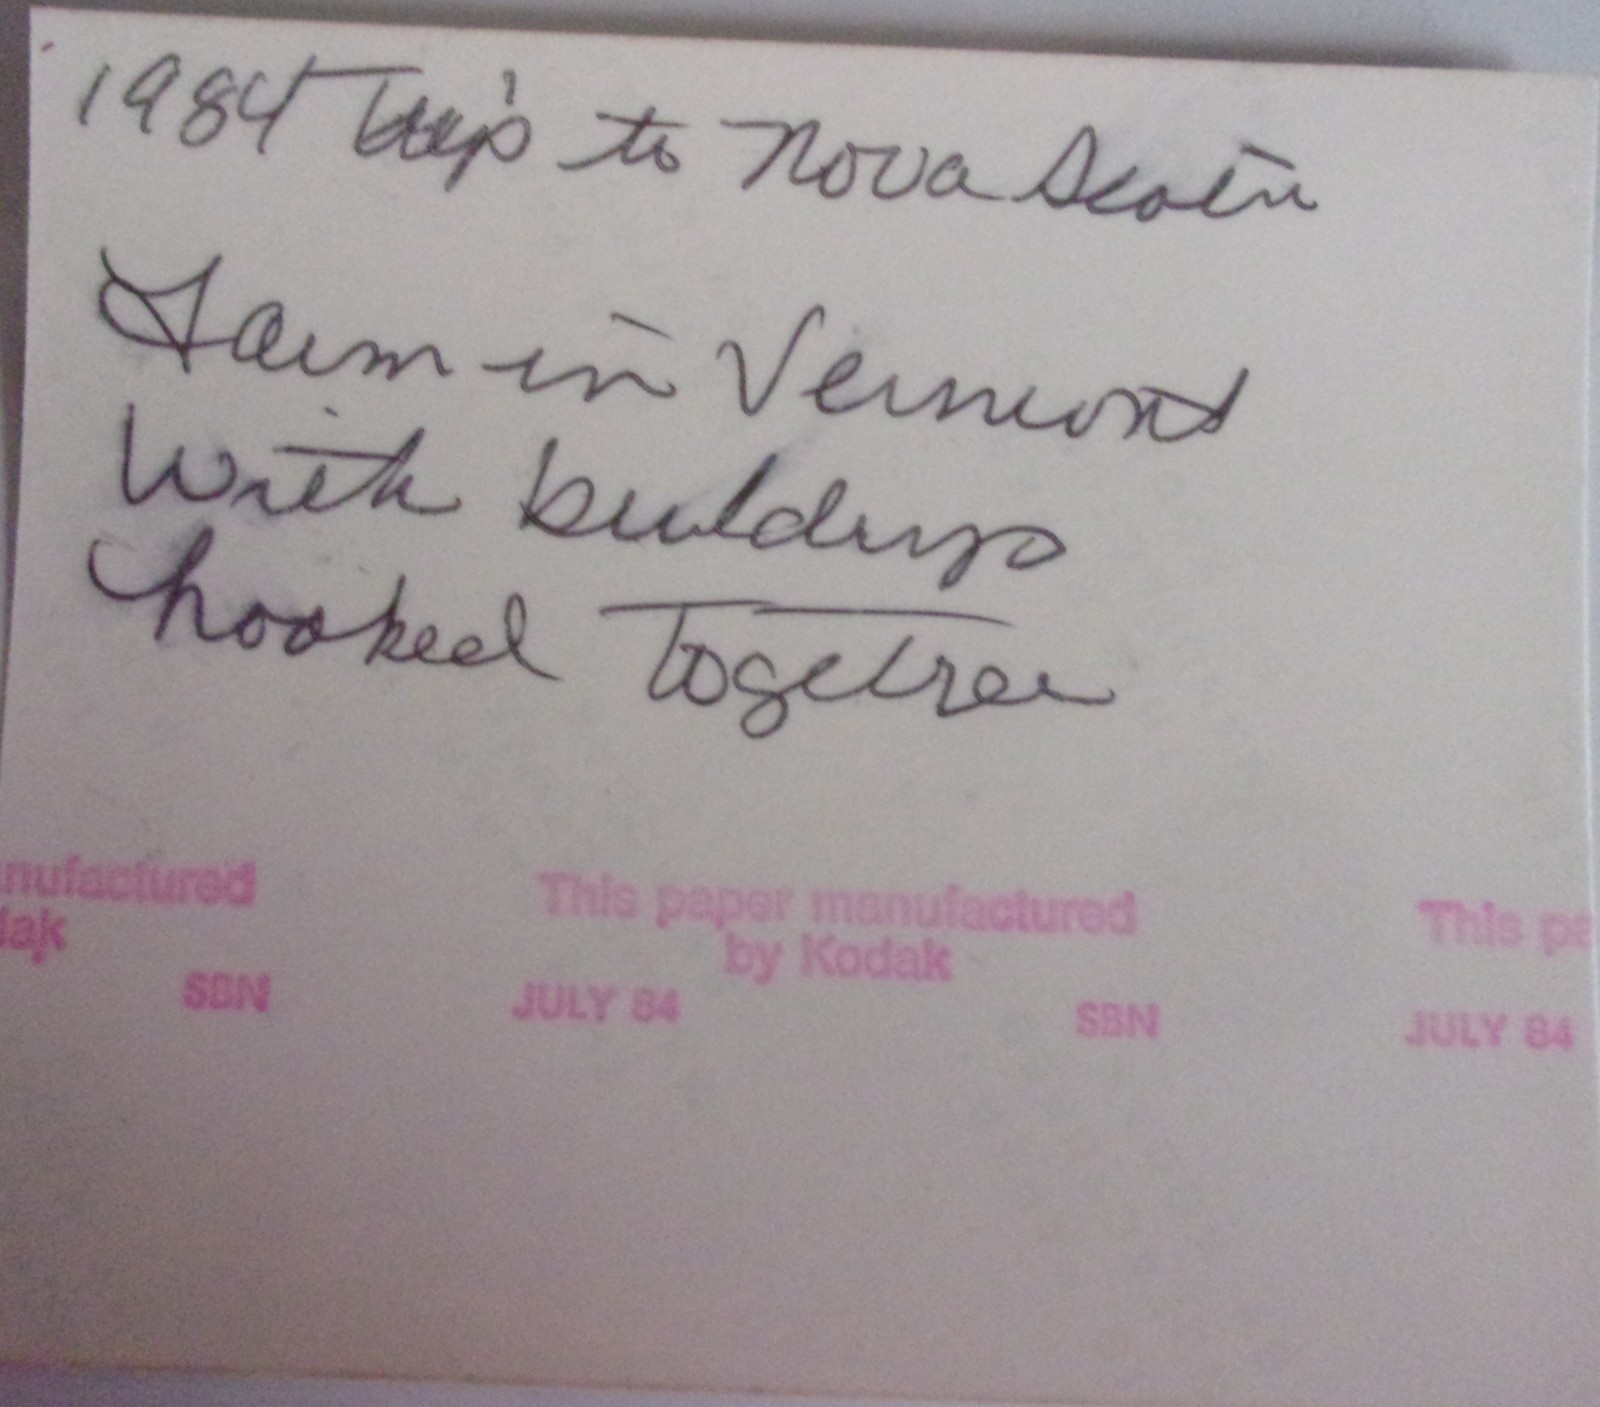 1984 Trip to Nova Scotia
Farm in Vermont
With buildings
hooked Together
nufactured This paper manufactured This pa
dak by Kodak
SBN JULY 84 SBN JULY 84